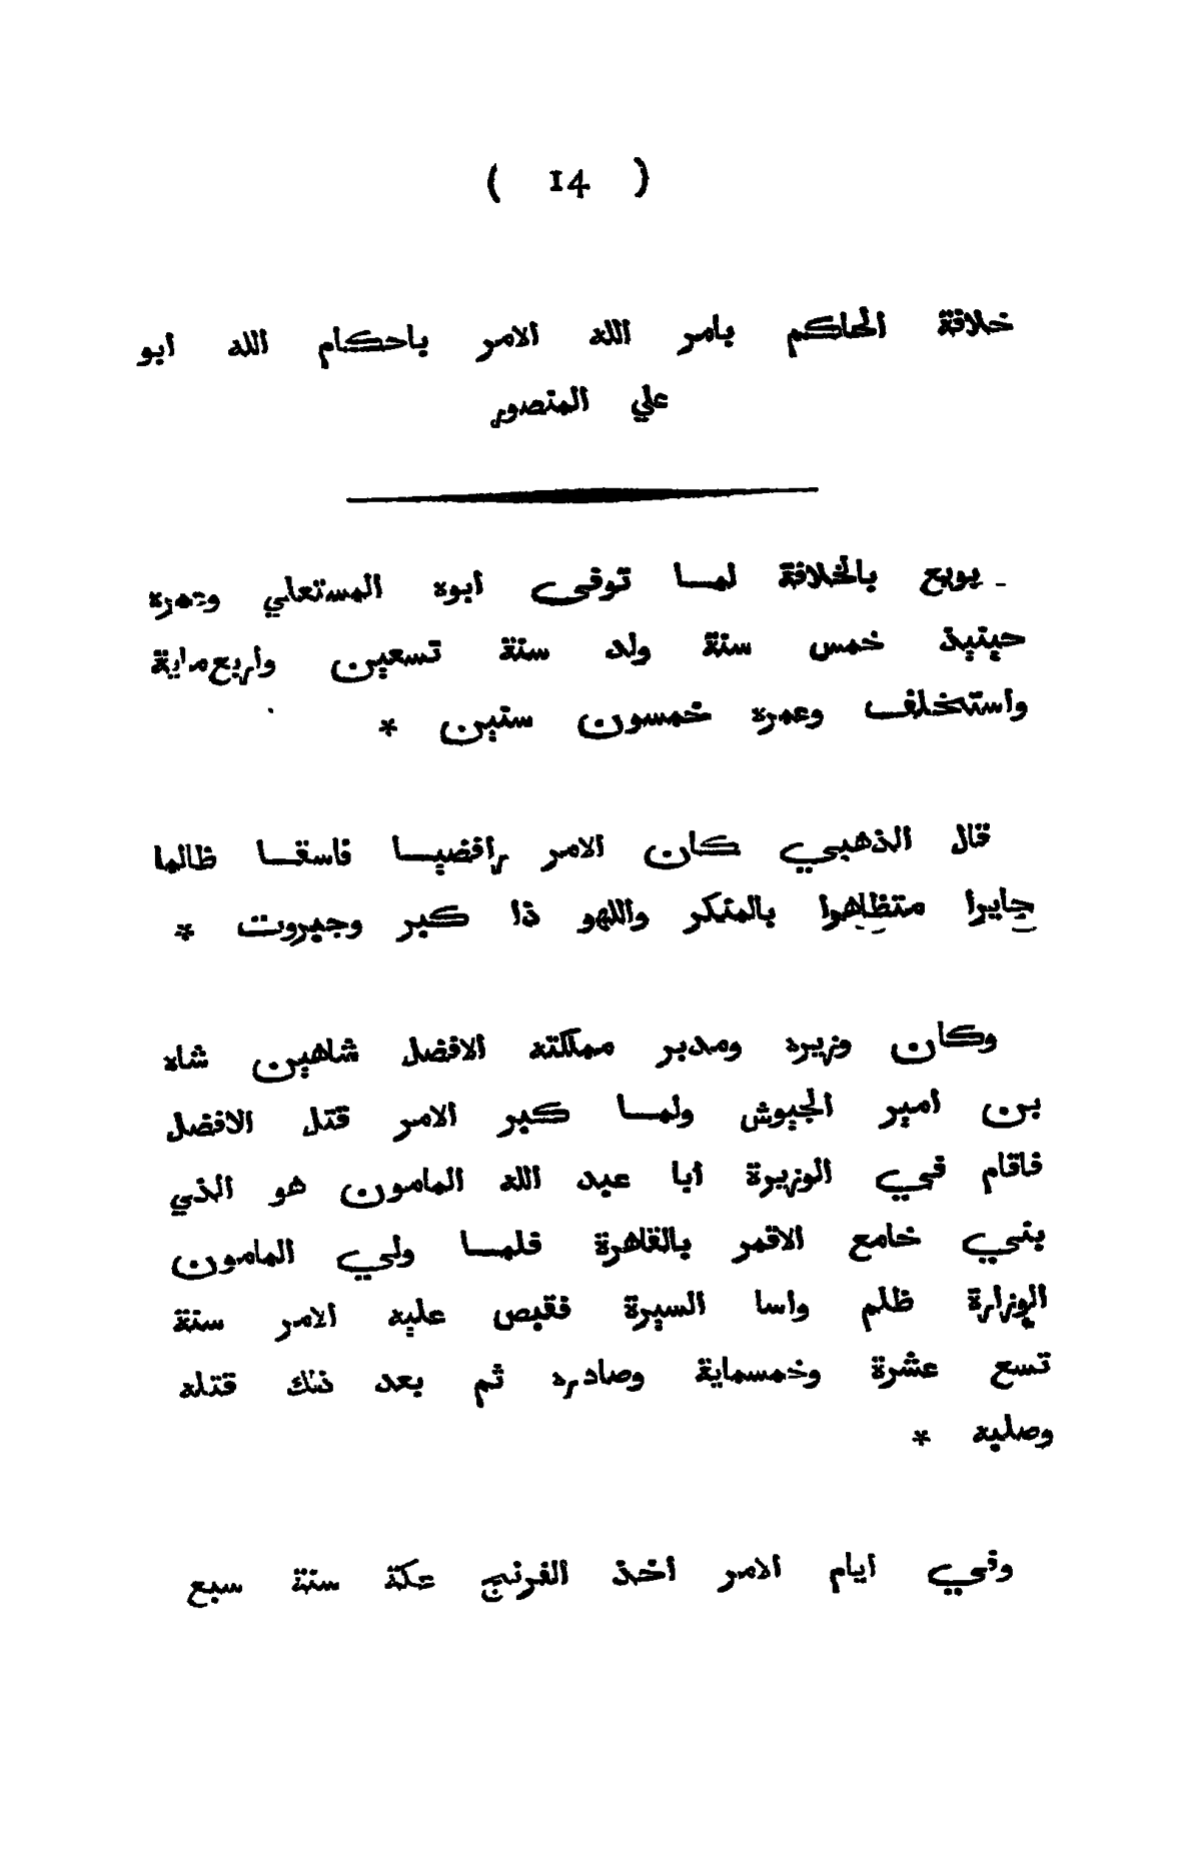 ( 14 )
خلافة الحاكم بامر الله الامر باحكام الله ابو
علي المنصور
يويع بالخلافة لمـا توفى ابوه المستعلي وعمره
حينيذ خمس سنة ولد سنة تسعين واربع ماية
واستخلف وعمره خمسون سنين *
قال الذهبي كان الامر رافضيـا فاسقـا ظالما
جايرا متظاهرا بالمنكر واللهو ذا كبر وجبروت *
وكان وزيره ومدبر مملكته الافضل شاهين شاه
بن امير الجيوش ولمـا كبر الامر قتل الافضل
فاقام في الوزيرة ابا عبد الله المامون هو الذي
بني خامع الاقمر بالقاهرة فلمـا ولي المامون
الوزارة ظلم واسا السيرة فقبص عليه الامر سنة
تسع عشرة وخمسماية وصادره ثم بعد ذلك قتله
وصلبه *
وفي ايام الامر اخذ الفرنج عكة سنة سبع